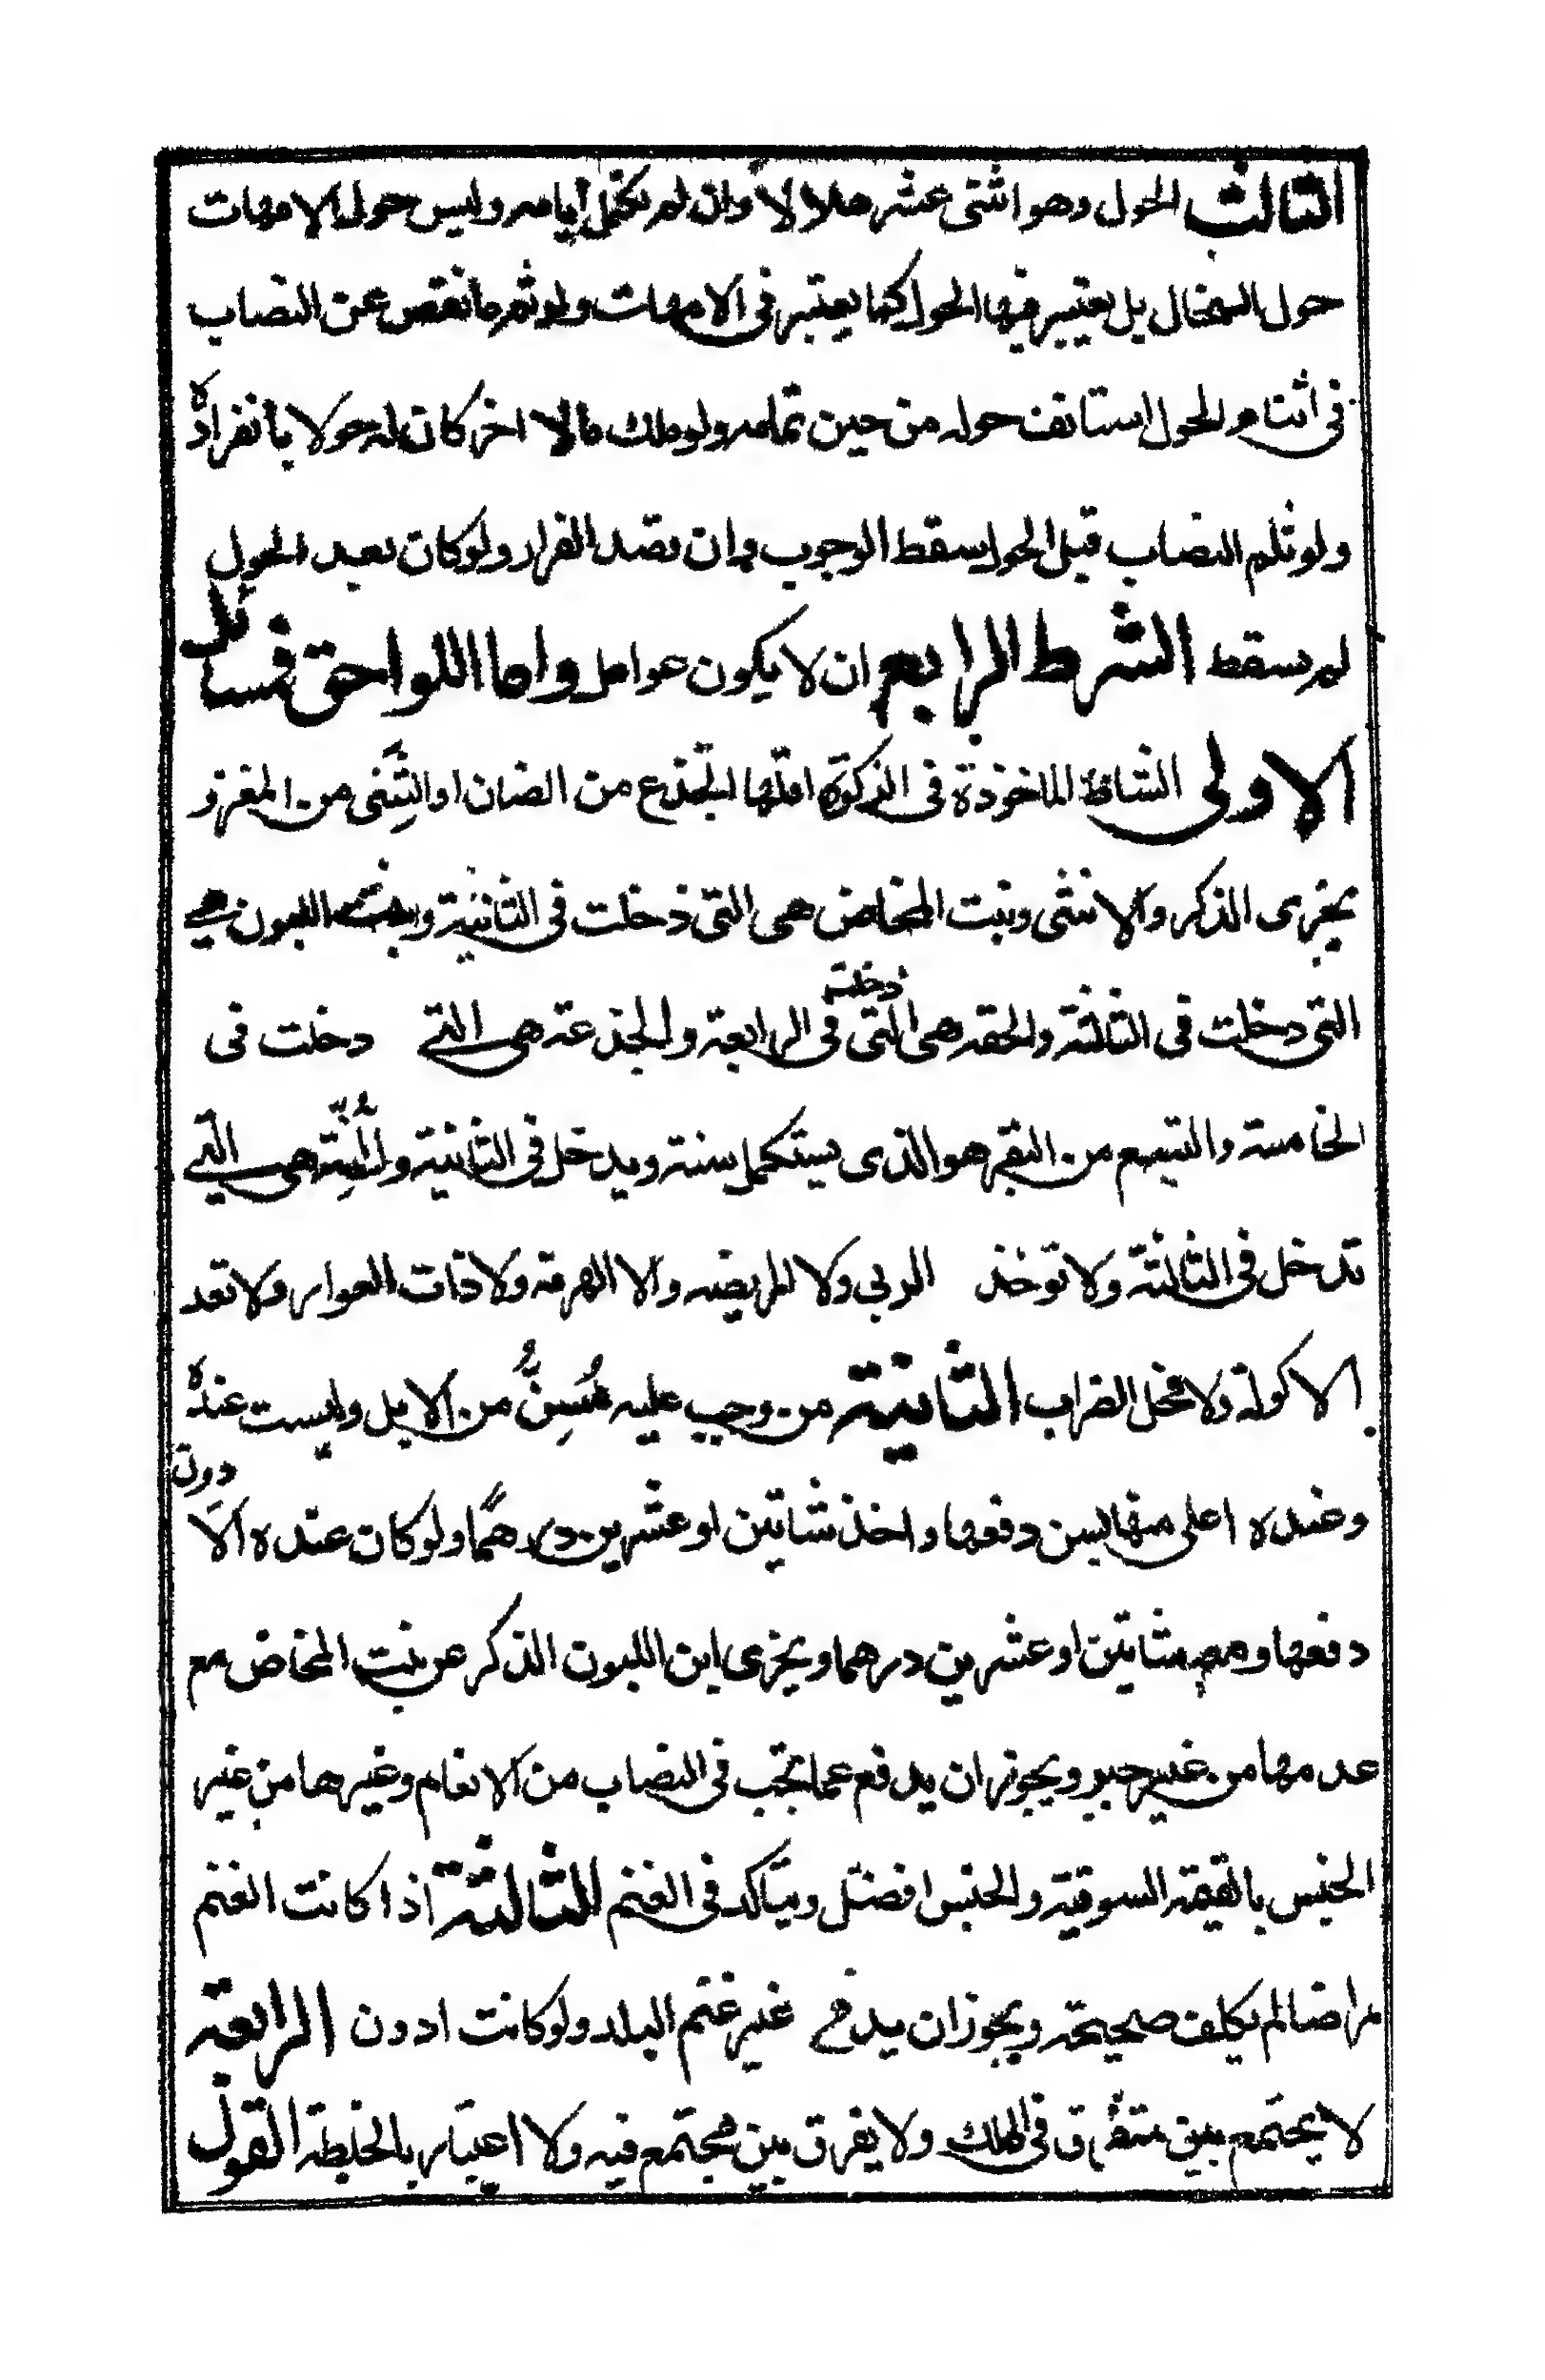 الثالث الحول وهو اثنى عشر هلالا وان لم تكمل أيامه وليس حول الامهات
حول السخال بل يعتبر فيها الحول كما يعتبر فى الامهات ولو ثم ما نقص عن النصاب
فى اثناء الحول استانف حوله من حين تمامه ولو ملك مالا اخر كان له حولا بأنفراده
ولو ثلم النصاب قبل الحول سقط الوجوب وان قصد الفرار ولو كان بعد الحول
لم يسقط الشرط الرابع ان لا يكون عوامل واما اللواحق فمسائل
الاولى الشاة الماخوذة فى الزكوة اقلها الجذع من الضان او الثنى من المغزز
يجزى الذكر والانثى وبنت المخاض هى التى ذخلت فى الثانية وبنت اللبون هى
التى دخلت فى الثالثة والحقه هى التى دخلت فى الرابعة والجذعة هى التى دخلت فى
الخامسة والتبيع من البقر هو الذى يستكمل سنة ويدخل فى الثانية والمُسِنّة هى التى
تدخل فى الثالثة ولا توخذ الربى ولا المريضه ولا الهرمة ولا ذات العوار ولا تعد
الاكولة ولا فحل الضراب الثانية من وجب عليه مُسِنٌّ من الابل وليست عنده
وعنده اعلى منها بسن دفعها واخذ شاتين او عشرين درهمًا ولو كان عنده الادون
دفعها ومعه شاتين او عشرين درهما ويجزى ابن اللبون الذكر عن بنت المخاض مع
عدمها من غير جبر ويجوز ان يدفع عما تجب فى النصاب من الانعام وغيرها من غير
الجنس بالقيمة السوقية والجنس افضل ويتاكد فى الغنم الثالثة اذا كانت الغنم
مراضا لم يكلف صحيحة ويجوز ان يدفع غير غنم البلد ولو كانت ادون الرابعة
لا يجتمع بين متفرق فى الملك ولا يفرق بين مجتمع فيه ولا اعتبار بالخلطة القول